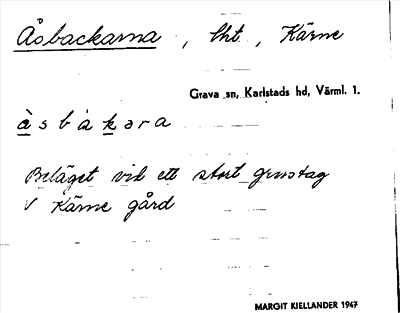 Åsbackarna, lht, Kärne
Grava sn, Karlstads hd, Värml. 1.
àsbàkara
Beläget vid ett stort grustag
V Kärne gård
MARGIT KJELLANDER 1947